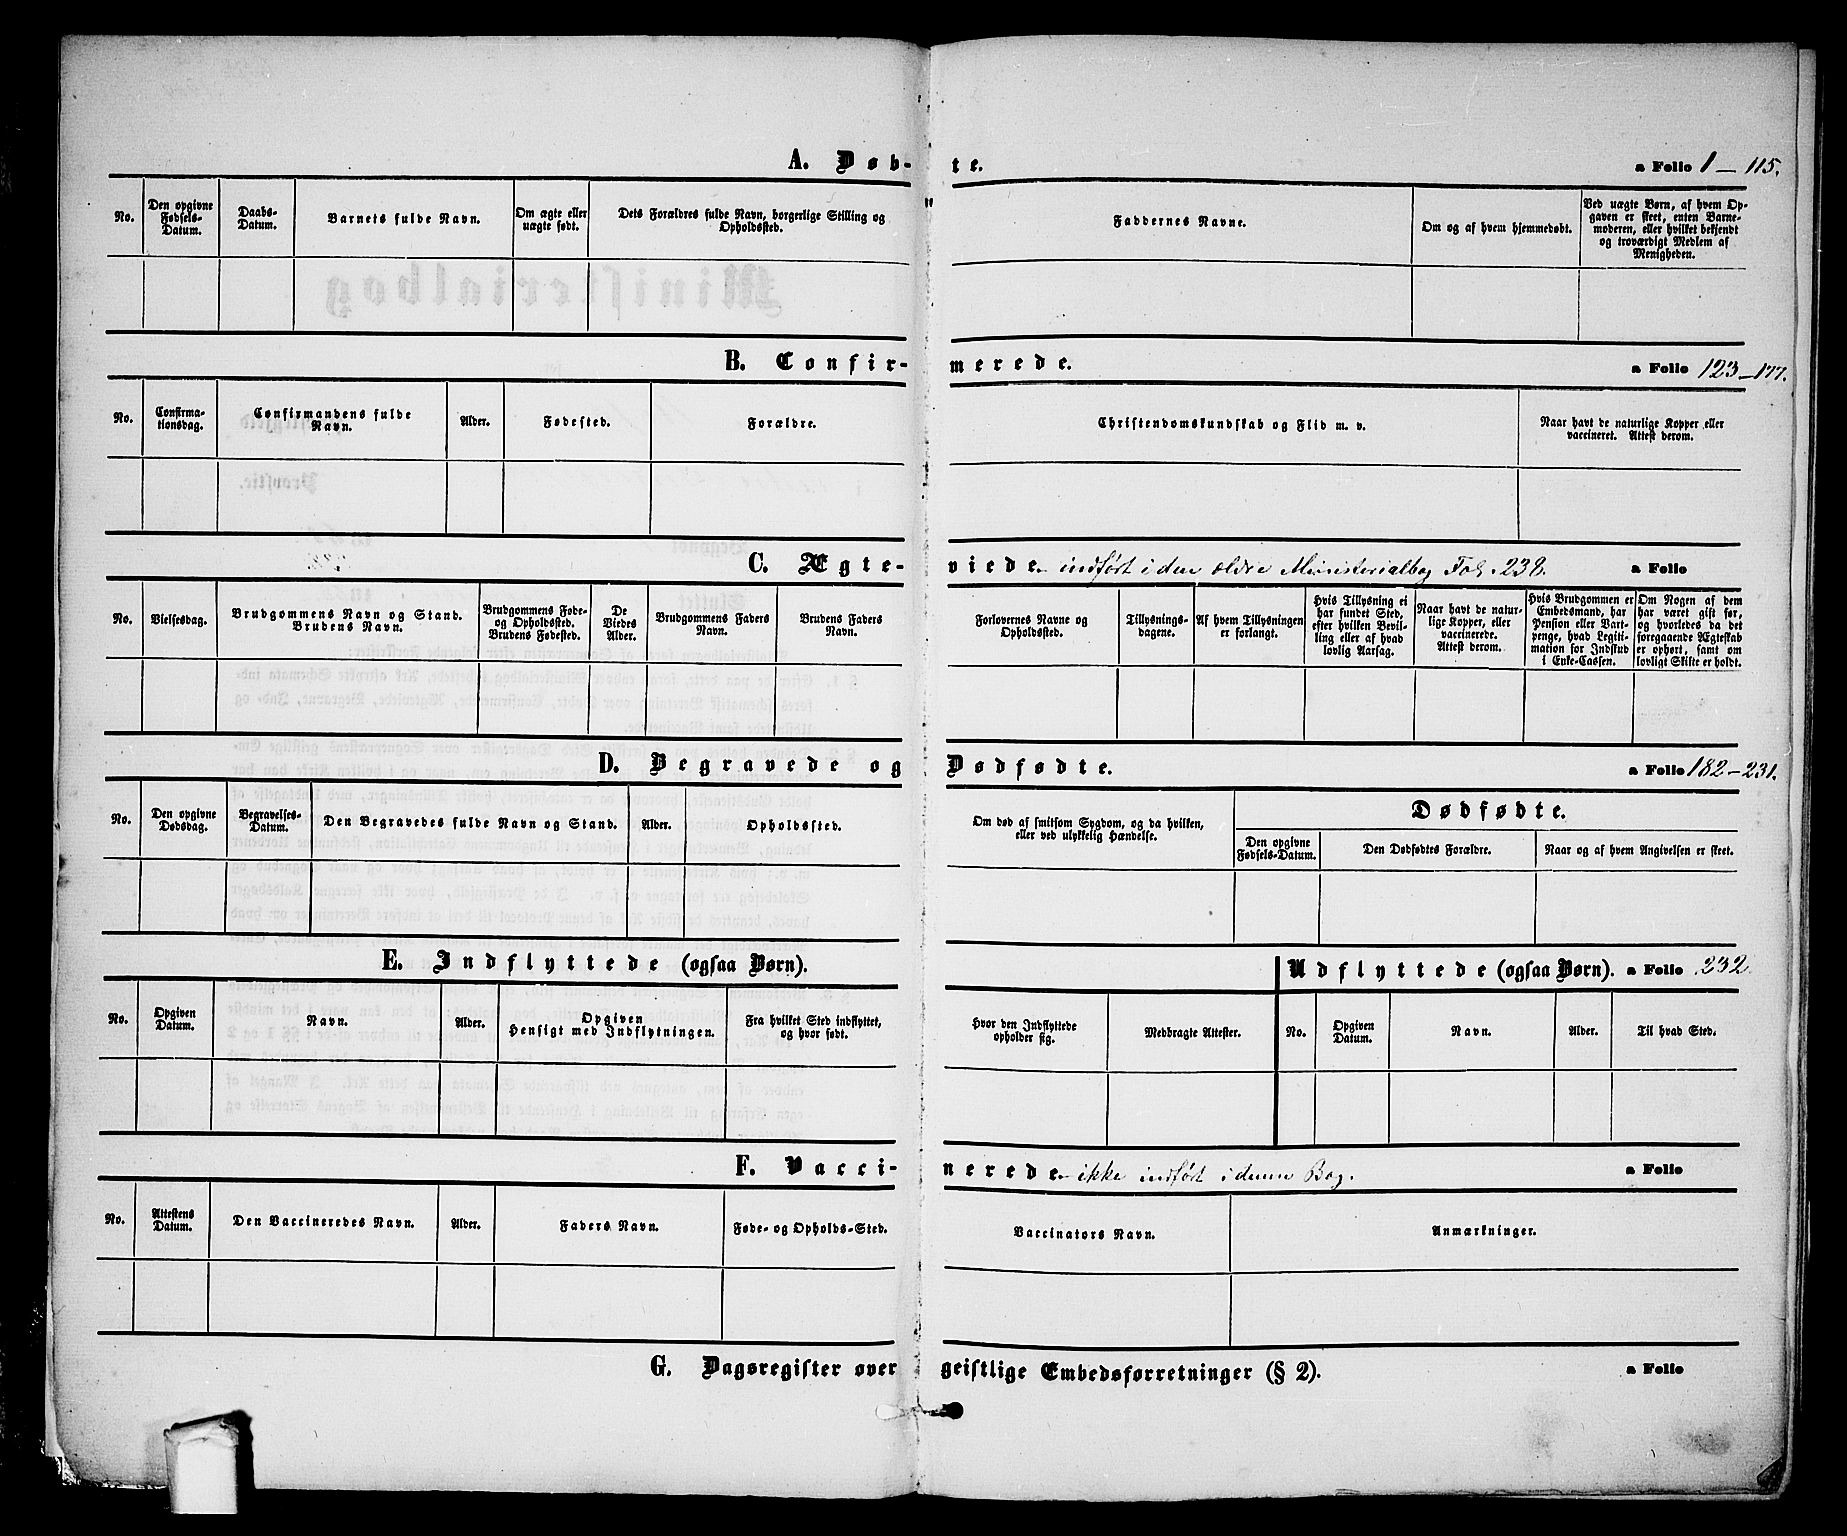 A. Døbte. a Folio 1 – 115.
No.
Den opgivne
Fødsels-
Datum.
Daabs-
Datum.
Barnets fulde Navn.
Om ægte eller
uægte født.
Dets Forældres fulde Navn, borgerlige Stilling og
Opholdssted.
Faddernes Navne.
Om og af hvem hjemmedøbt.
Ved uægte Børn, af hvem Op-
gaven er skeet, enten Barne-
moderen, eller hvilket bekjendt
og troværdigt Medlem af
Menigheden.
B. Confirmerede. a Folio 123 – 177.
No.
Confirma-
tionsdag.
Confirmandens fulde
Navn.
Alder.
Fødested.
Forældre.
Christendomskundskab og Flid m. v.
Naar havt de naturlige Kopper eller
vaccineret. Attest derom.
C. Ægteviede indført i den ældre Ministerialbog Fol. 238. a Folio
No.
Vielsesdag.
Brudgommens Navn og Stand.
Brudens Navn.
Brudgommens Føde-
og Opholdssted.
Brudens Fødested.
De
Viedes
Alder.
Brudgommens Faders
Navn.
Brudens Faders
Navn.
Forlovernes Navne og
Opholdssted.
Tillysnings-
dagene.
Af hvem Tillysningen
er forlangt.
Hvis Tillysning ei
har fundet Sted,
efter hvilken Bevil-
ling eller af hvad
lovlig Aarsag.
Naar havt de natur-
lige Kopper, eller
vaccinerede.
Attest derom.
Hvis Brudgommen er
Embedsmand, har
Pension eller Vart-
penge, hvad Legiti-
mation for Indskud
i Enke-Cassen.
Om Nogen af dem
har været gift før,
og hvorledes da det
foregaaende Ægteskab
er ophørt, samt om
lovligt Skifte er holdt.
D. Begravede og Dødfødte. a Folio 182 – 231.
No.
Den opgivne
Dødsdag.
Begravelses-
Datum.
Den Begravedes fulde Navn og Stand.
Alder.
Opholdssted.
Om død af smitsom Sygdom, og da hvilken,
eller ved ulykkelig Hændelse.
Dødfødte.
Den opgivne
Fødsels-Datum.
Den Dødfødtes Forældre.
Naar og af hvem Angivelsen er skeet.
E. Indflyttede (ogsaa Børn).
Udflyttede (ogsaa Børn). a Folio 232
No.
Opgiven
Datum.
Navn.
Alder.
Opgiven
Hensigt med Indflytningen.
Fra hvilket Sted indflyttet,
og hvor født.
Hvor den Indflyttede
opholder sig.
Medbragte Attester.
No.
Opgiven
Datum.
Navn.
Alder.
Til hvad Sted.
F. Vaccinerede ikke indført i denne Bog. a Folio
No.
Attestens
Datum.
Den Vaccineredes Navn.
Alder.
Faders Navn.
Føde- og Opholds-Sted.
Vaccinators Navn.
Anmærkninger.
G. Dagsregister over geistlige Embedsforretninger (§ 2). a Folio